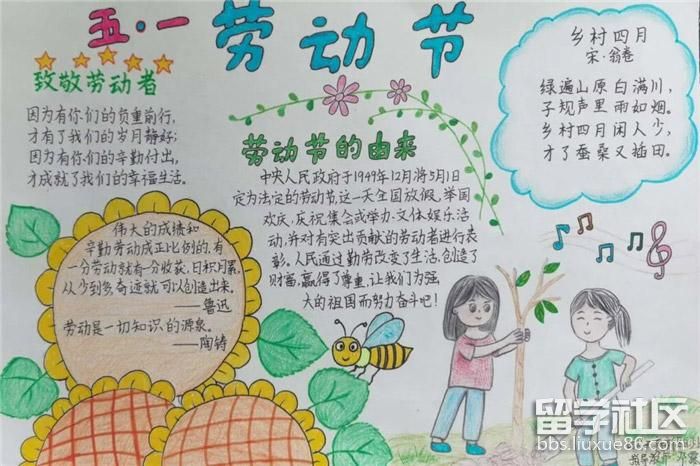 五·一 劳动节
致敬劳动者
因为有你们的负重前行,
才有了我们的岁月静好;
因为有你们的辛勤付出,
才成就了我们的幸福生活。
伟大的成绩和
辛勤劳动成正比例的,有
一分劳动就有一分收获,日积月累,
从少到多,奇迹就可以创造出来。
——鲁迅
劳动是一切知识的源泉。
——陶铸
劳动节的由来
中央人民政府于1949年12月将5月1日
定为法定的劳动节,这一天全国放假、举国
欢庆,庆祝集会或举办文体娱乐活
动,并对有突出贡献的劳动者进行表
彰。人民通过勤劳改变了生活,创造了
财富,赢得了尊重,让我们为强
大的祖国而努力奋斗吧!
乡村四月
宋·翁卷
绿遍山原白满川,
子规声里雨如烟。
乡村四月闲人少,
才了蚕桑又插田。
留学社区
bbs.liuxue86.com